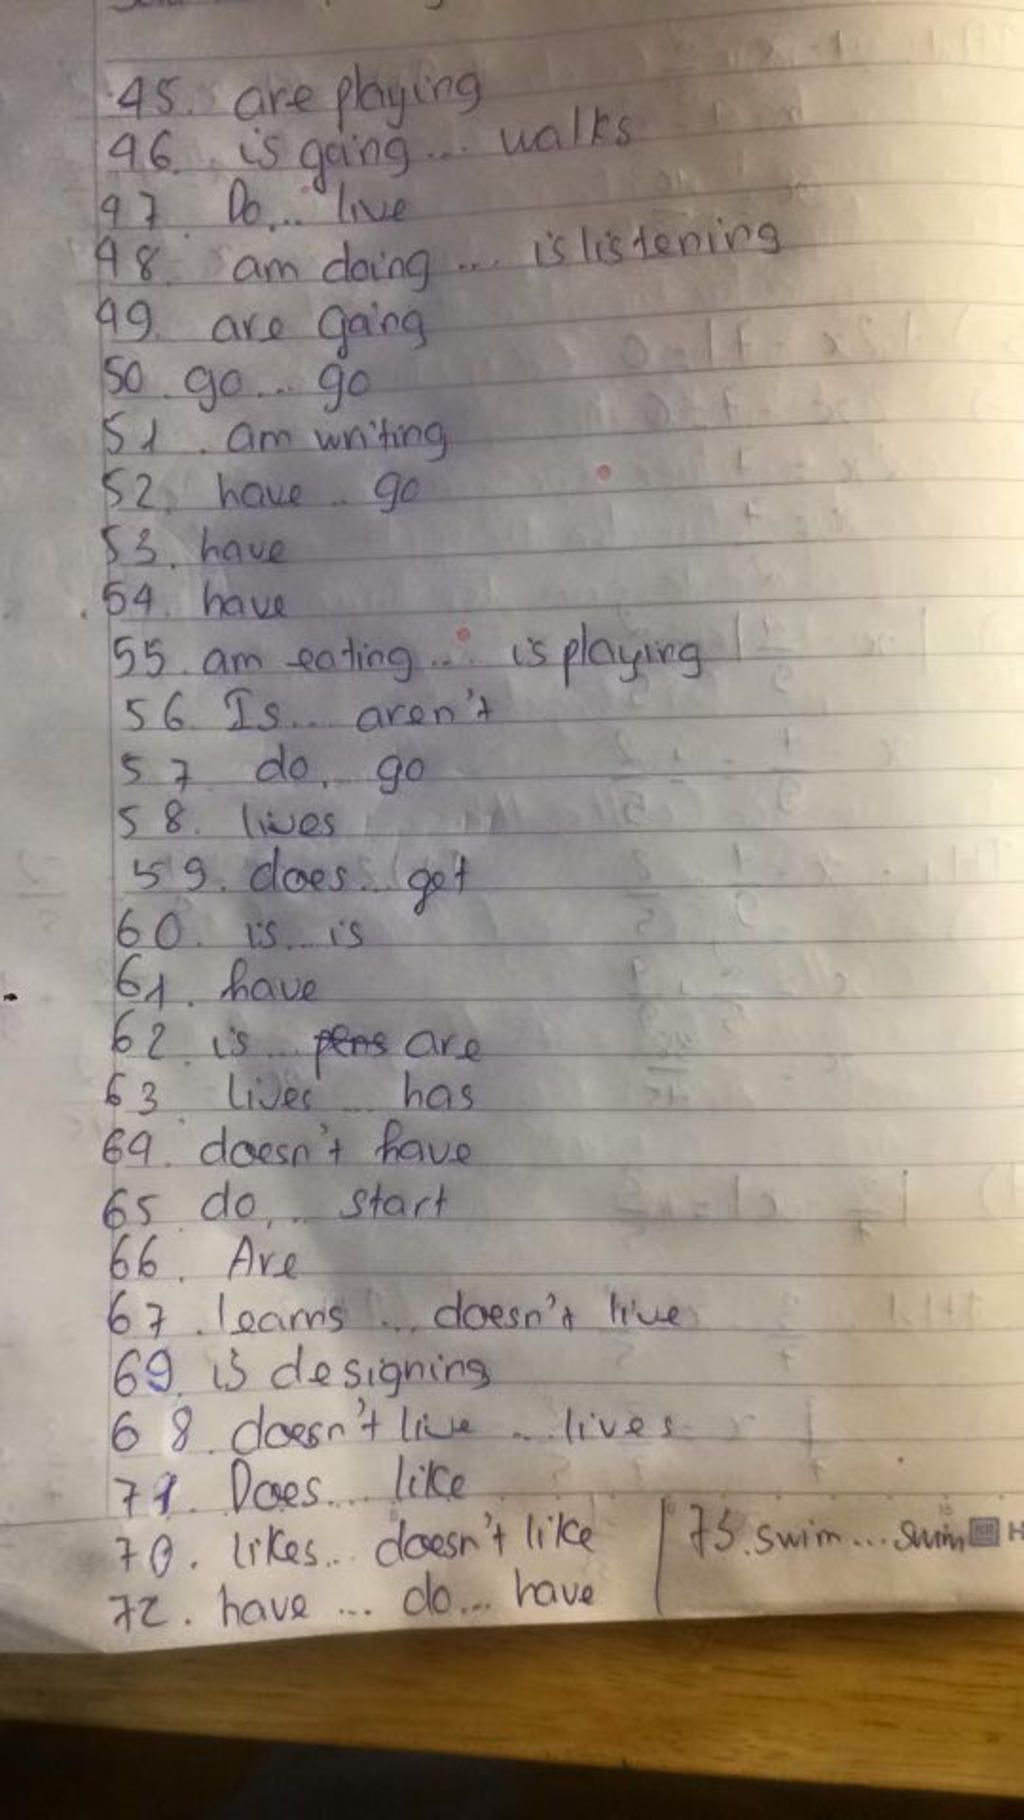 45. are playing
46. is going... walks
47. Do... live
48. am doing... is listening
49. are going
50. go... go
51. am writing
52. have.. go
53. have
54. have
55. am eating... is playing
56. Is... aren't
57 do... go
58. lives
59. does... get
60. is... is
61. have
62 is... are
63 lives... has
64. doesn't have
65 do... start
66. Are
67. learns... doesn't live
69. is designing
68. doesn't live... lives
71. Does... like
70. likes... doesn't like
72. have... do... have
75. swim... swim